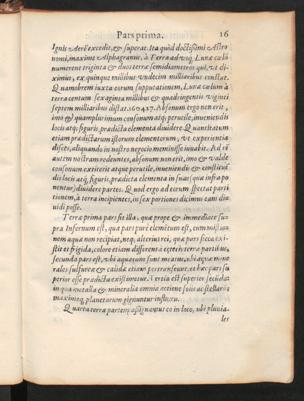 Pars prima. 16
Ignis Aeri excedit, & superat. Ita quòd doctissimi Astro
nomi, maxime Alphagranie, à Terra ad vsq; Lunæ cælũ
numerent triginta & duos terræ semidiametros qui, vt di-
ximus, ex quinque millibus vndecim milliaribus constat.
Quamobrem iuxta eorum supputationem, Lunæ cælum à
terra centum sexaginta millibus & quadringentis viginti
septem milliaribus distat. 160427. Absonum ergo non erit,
imo & quamplurimum consonum atq; pervtile, inveniendi
locis atq; figuris prædicta elementa diuidere. Quantitatem
etiam
aliquando in nostro negocio meminisse iuuabit. Ad rẽ
autem nostram redeuntes, absonum non erit, imo & valde
consonum extiterit atque pervtile, inueniendi & construẽ
di locis atq; figuris prædicta elementa in suas (quæ infra po
nentur) diuidere partes. Quod ergo ad terram spectat parti
tionem, à terra incipientes, in sex portiones diximus eam diui
di posse.
Terræ prima pars sit illa, quæ propè & immediatè su-
pra Infernum est, quæ pars purè elementum est, cum mistio
nem aquæ non recipiat, neq; alterius rei, quæ pars sicca exi-
stit & frigida, colore etiam differens à cæteris terræ partibus,
secunda pars est, vbi aquarum sunt meatus, vbi aquæ mine
rales sulfureæ & calidæ etiam pertranseunt, et hæc pars su
perior esse prædicta existimetur. Tertia est superior secunda,
in qua metalla & mineralia omnia actione solis ac stellarũ
maximeq; planetarum gignuntur influxu.
Quarta terræ partem assignamus eo in loco, vbi pluuia-
les